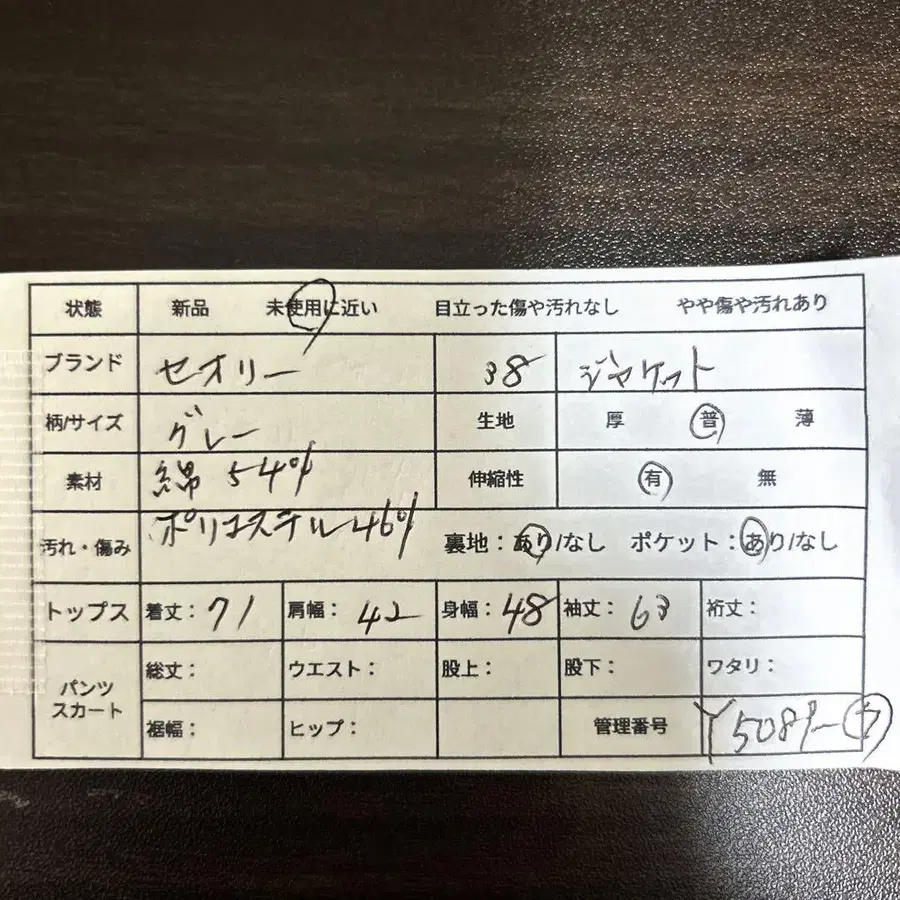 状態 新品 未使用に近い 目立った傷や汚れなし やや傷や汚れあり
ブランド セオリー 38 ジャケット
柄/サイズ グレー 生地 厚 普 薄
素材 綿 54% 伸縮性 有 無
汚れ・傷み ポリエステル46% 裏地：あり/なし ポケット：あり/なし
トップス 着丈：71 肩幅：42 身幅：48 袖丈：63 裄丈：
パンツ スカート 総丈： ウエスト： 股上： 股下： ワタリ：
裾幅： ヒップ： 管理番号 Y5089-ウ